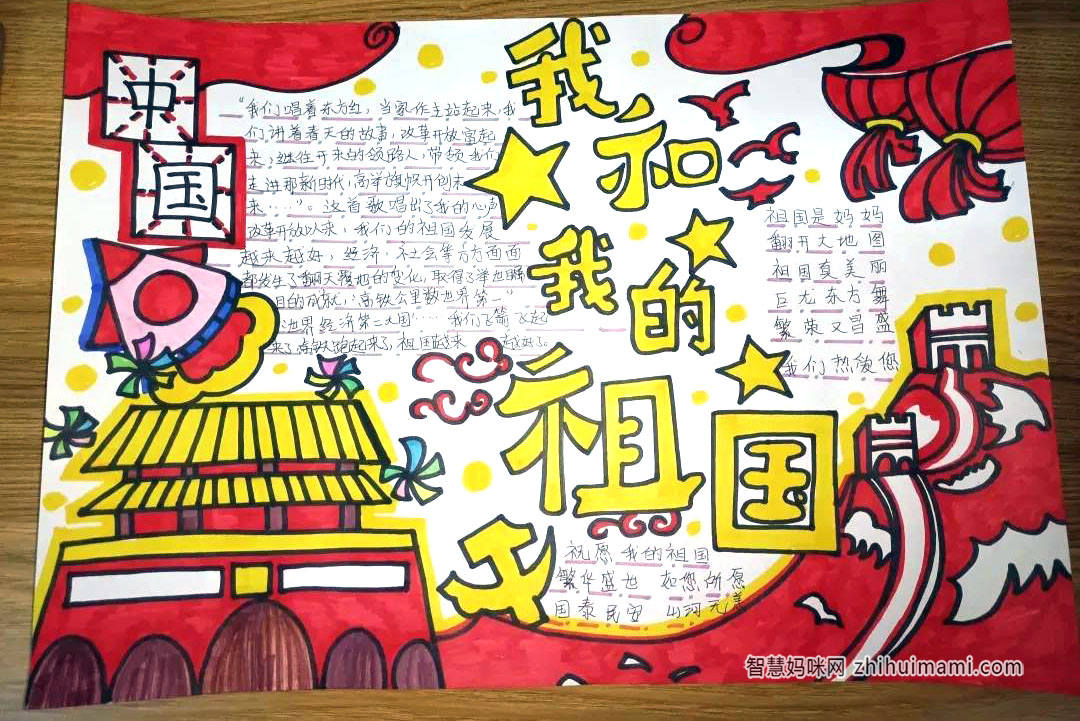 中国
"我们唱着东方红，当家作主站起来，我
们讲着春天的故事，改革开放富起
来，继往开来的领路人，带领我们
走进那新时代，高举旗帜开创未
来……"。这首歌唱出了我的心声
改革开放以来，我们的祖国发展
越来越好，经济、社会等方方面面
都发生了翻天覆地的变化，取得了举世瞩
目的成就，"高铁公里数世界第一"
世界经济第二大国……我们飞船飞起
来了高铁跑起来了，祖国越来 越好了。
我和
我的
祖国
祖国是妈妈
翻开大地图
祖国真美丽
巨龙东方舞
繁荣又昌盛
我们热爱您
祝愿我的祖国
繁华盛世 如您所愿
国泰民安 山河无恙
智慧妈咪网 zhihuimami.com